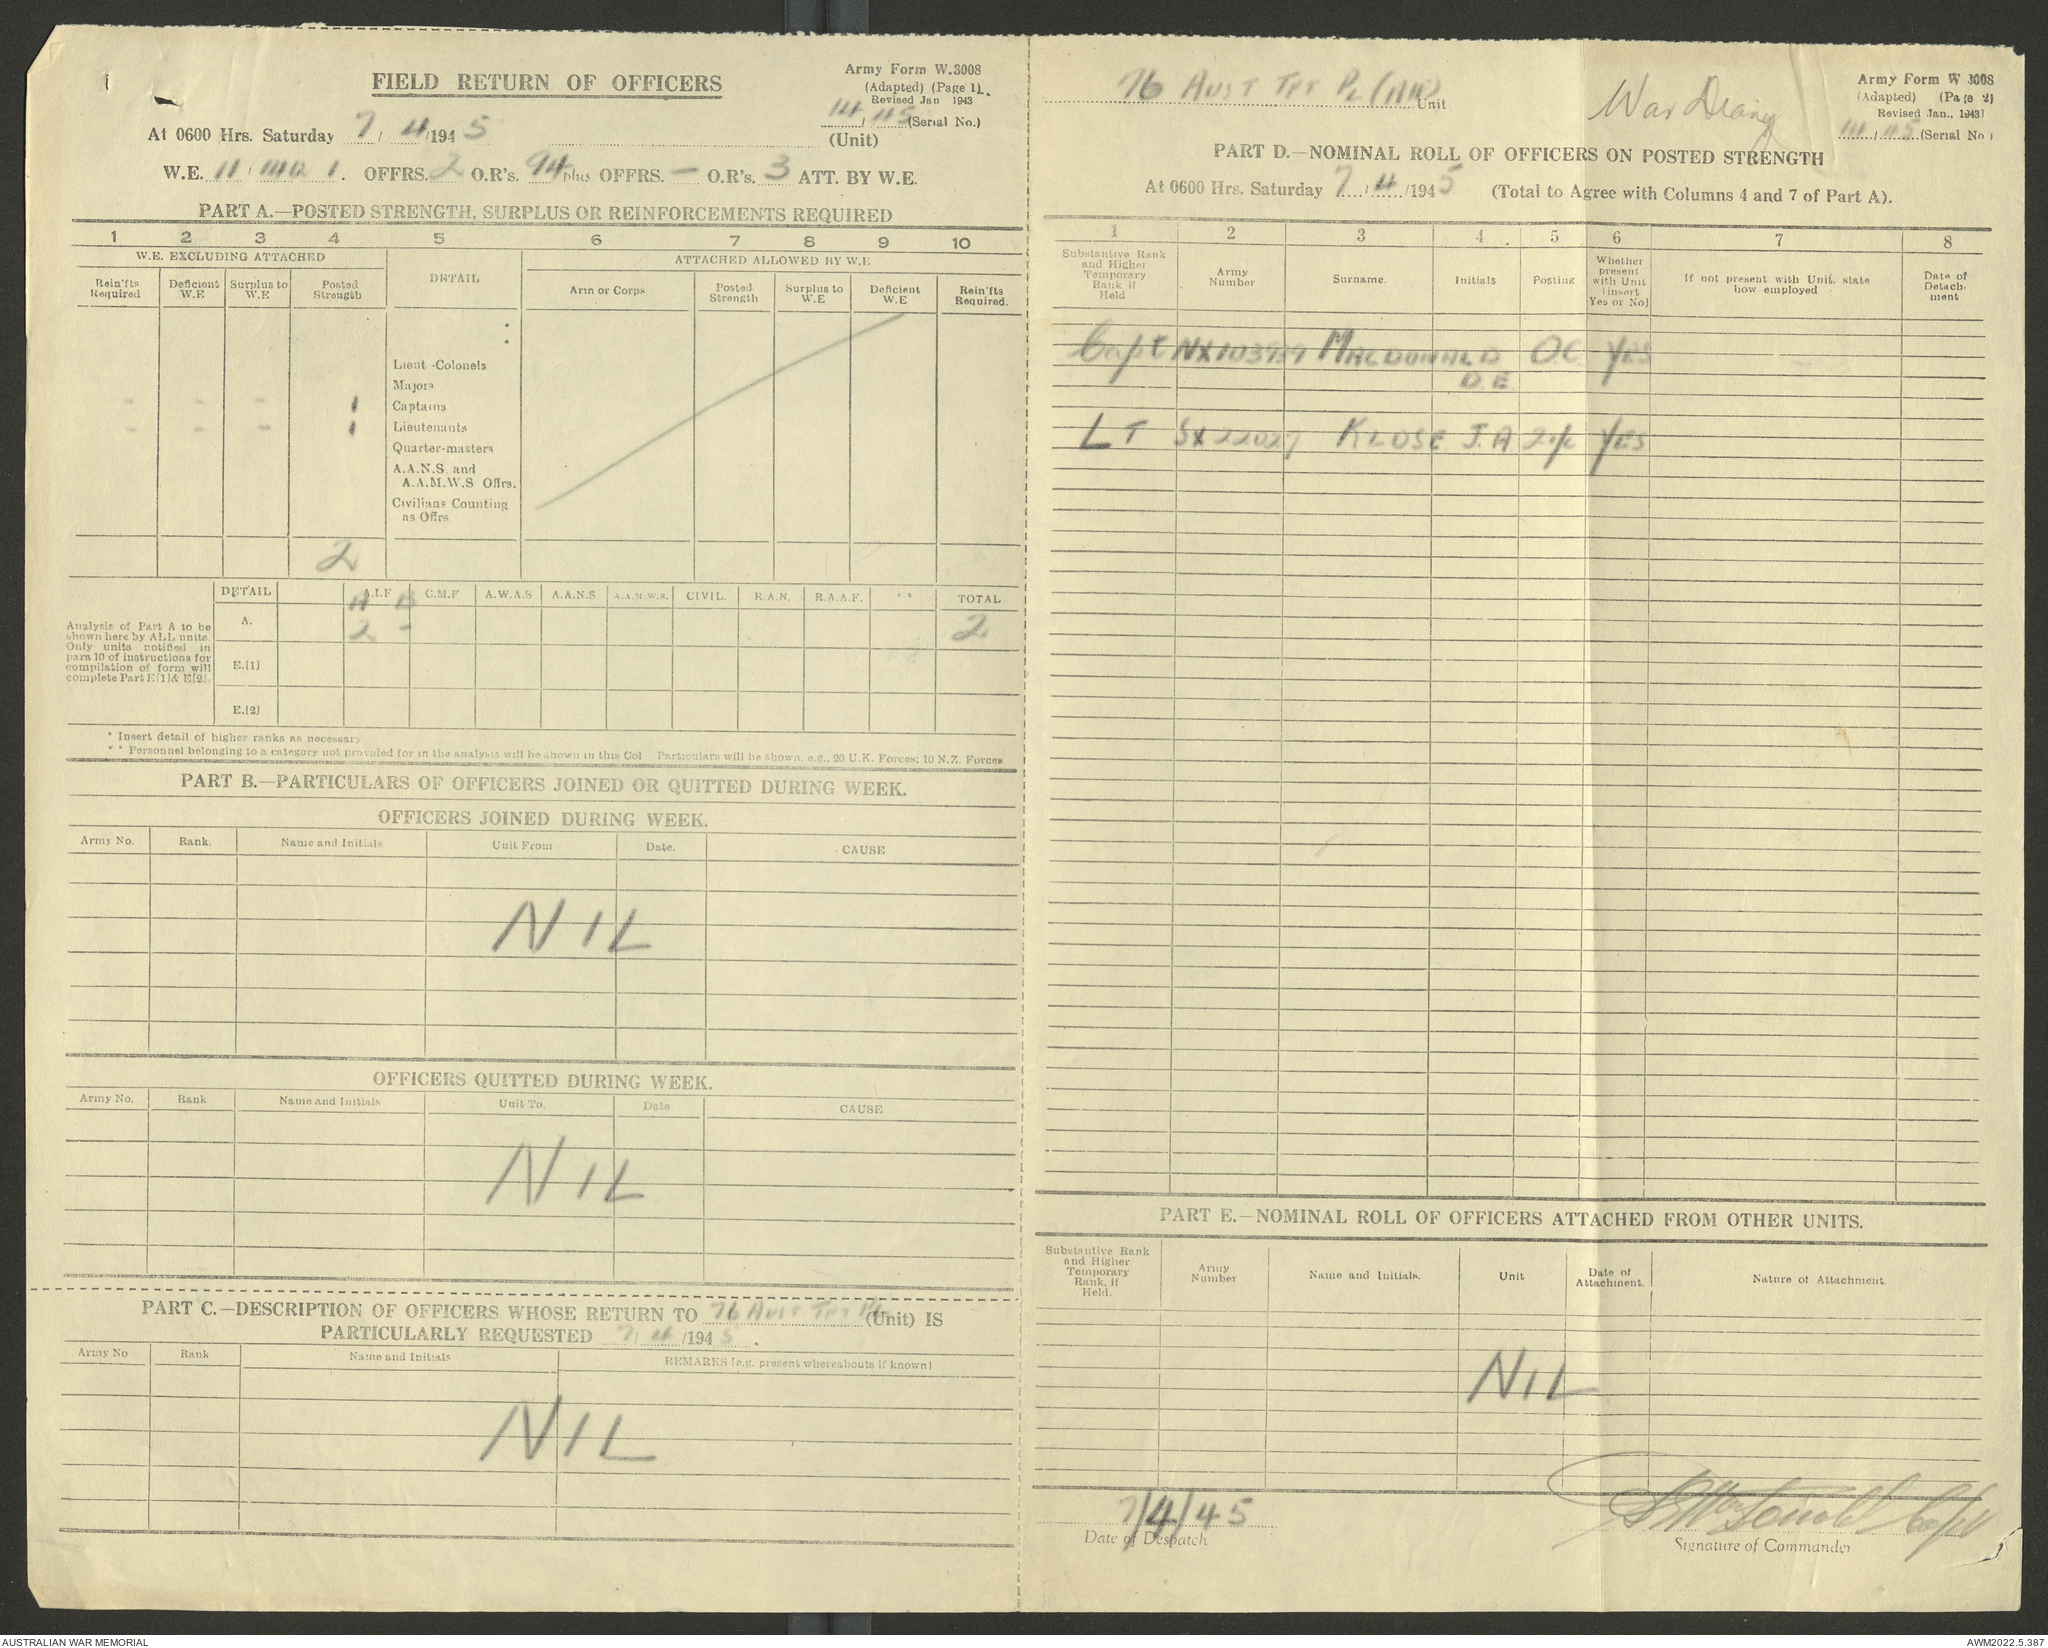 FIELD RETURN OF OFFICERS
Army Form W.3008
(Adapted) (Page 1).
Revised Jan 1943
14/45 (Serial No.)
At 0600 Hrs. Saturday 7/4/1945
(Unit)
W.E. 11 1 OFFRS. 2 O.R's. 94 plus OFFRS. - O.R's. 3 ATT. BY W.E.
PART A.—POSTED STRENGTH, SURPLUS OR REINFORCEMENTS REQUIRED
1 2 3 4 5 6 7 8 9 10
W.E. EXCLUDING ATTACHED DETAIL ATTACHED ALLOWED BY W.E
Rein'fts Required Deficient W.E Surplus to W.E Posted Strength Arm or Corps Posted Strength Surplus to W.E Deficient W.E Rein'fts Required.
Lieut-Colonels
Majors
- - - 1 Captains
- - - 1 Lieutenants
Quarter-masters
A.A.N.S. and
A.A.M.W.S Offrs.
Civilians Counting
as Offrs
2
Analysis of Part A to be
shown here by ALL units.
Only units notified in
para 10 of instructions for
compilation of form will
complete Part E[1] & E[2].
DETAIL A.I.F C.M.F A.W.A.S A.A.N.S A.A.M.W.S. CIVIL. R.A.N. R.A.A.F. ** TOTAL
A B
A. 2 - 2
E.[1]
E.[2]
* Insert detail of higher ranks as necessary
* * Personnel belonging to a category not provided for in the analysis will be shown in this Col Particulars will be shown, e.g., 20 U.K. Forces; 10 N.Z. Forces
PART B.—PARTICULARS OF OFFICERS JOINED OR QUITTED DURING WEEK.
OFFICERS JOINED DURING WEEK.
Army No. Rank. Name and Initials Unit From Date. CAUSE
NIL
OFFICERS QUITTED DURING WEEK.
Army No. Rank Name and Initials Unit To. Date CAUSE
NIL
PART C.—DESCRIPTION OF OFFICERS WHOSE RETURN TO 76 AUST TPT PL (Unit) IS
PARTICULARLY REQUESTED 7/4/1945.
Army No Rank Name and Initials REMARKS [e.g. present whereabouts if known]
NIL
76 AUST TPT PL (AIR) Unit
War Diary
Army Form W 3008
(Adapted) (Page 2)
Revised Jan., 1943)
14/45 (Serial No)
PART D.—NOMINAL ROLL OF OFFICERS ON POSTED STRENGTH
At 0600 Hrs. Saturday 7/4/1945 (Total to Agree with Columns 4 and 7 of Part A).
1 2 3 4 5 6 7 8
Substantive Rank and Higher Temporary Rank if Held Army Number Surname. Initials Posting Whether present with Unit [insert Yes or No] If not present with Unit, state how employed Date of Detachment
Capt NX103939 MACDONALD D.E OC YES
LT SX22027 KLOSE J.A 2i/c YES
PART E.—NOMINAL ROLL OF OFFICERS ATTACHED FROM OTHER UNITS.
Substantive Rank and Higher Temporary Rank, if Held. Army Number Name and Initials. Unit Date of Attachment. Nature of Attachment.
NIL
7/4/45
Date of Despatch
Capt
Signature of Commander
AUSTRALIAN WAR MEMORIAL
AWM2022.5.387